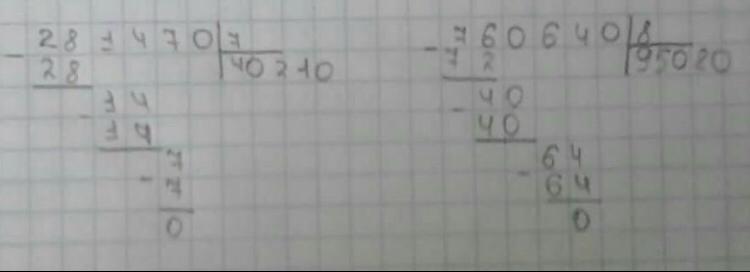 - 281470 | 7
28 | 40210
- 14
14
7
- 7
0
- 760640 | 8
72 | 95080
- 40
40
64
- 64
0